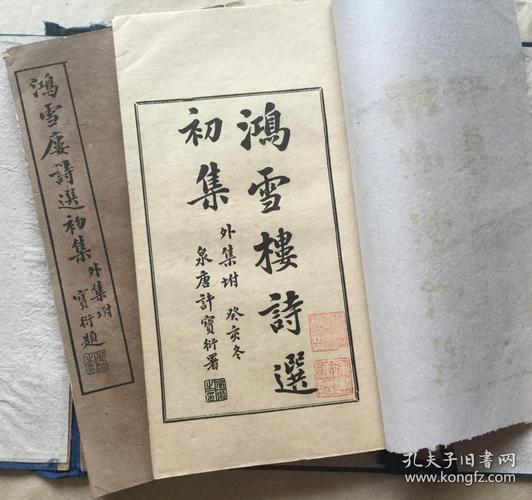 鴻雪樓詩選
初集
外集坿 癸亥冬
泉唐許寳衍署
鴻雪廔詩選初集
外集坿
寳衍題
孔夫子旧书网
www.kongfz.com